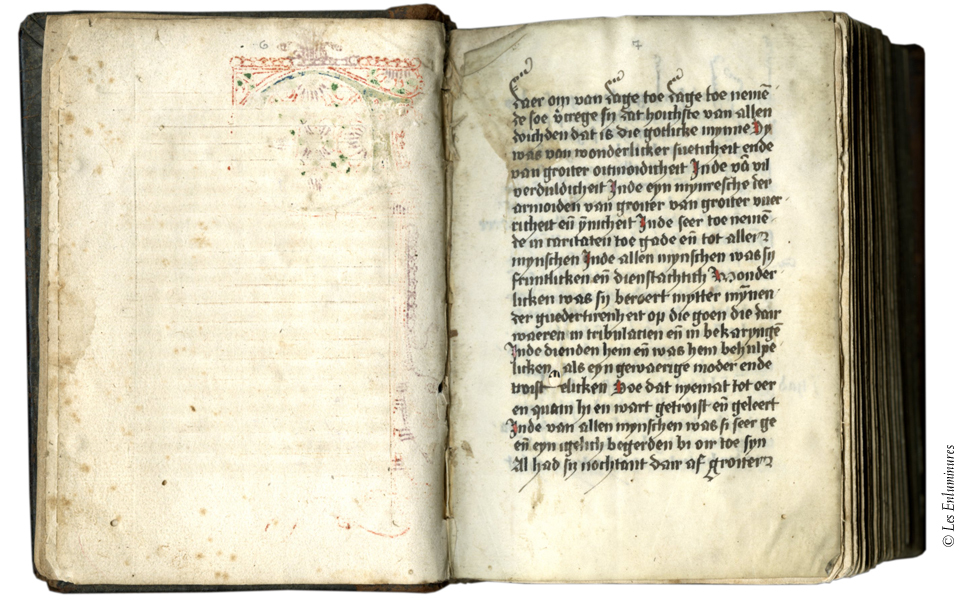 6
7
daer om van dage toe dage toe nemē
de soe v̄crege sij dat hoichste van allen
doichden dat is die gotlicke mynne Sy
was van wonderlicker sueticheit ende
van groiter oitmoidicheit Inde vā vil
verduldicheit Inde eyn mynresche der
armoiden van groiter van groiter vuer
richeit eñ ȳnicheit Inde seer toe nemē
de in caritaten toe gade eñ tot aller
mynschen Inde allen mynschen was sij
fruntlicken eñ dienstachtich Wonder
licken was sij beroert mytter mȳnen
der guedertirenheit op die goen die dair
waeren in tribulacien eñ in bekaryngē
Inde dienden hem eñ was hem behulpe
licken als eyn gewaerige moder ende
troist elicken Soe dat nyemāt tot oer
en quam hi en wart getroist eñ geleert
Inde van allen mynschen was si seer ge
eñ eyn igelich begerden bi oir toe syn
Al had sij nochtant dair af groiter
© Les Enluminures